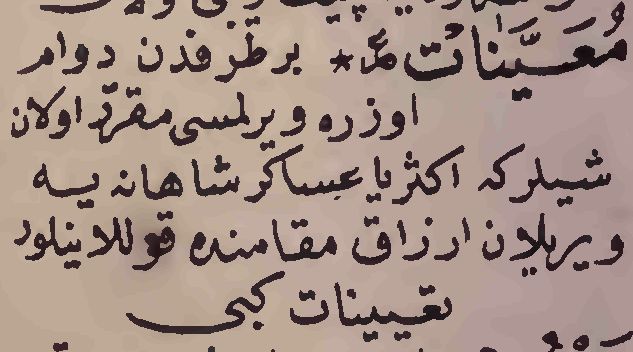 مُعَيَّنَات عم * بر طرفدن دوام
اوزره ويرلمسى مقرّر اولان
شيلركه اكثريا عساكر شاهانه يه
ويريلان ارزاق مقامنده قوللانيلور
تعيينات كبى